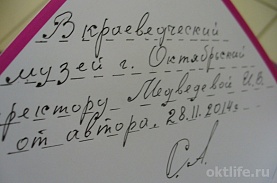 В краеведческий
музей г. Октябрьский
ректору Медведевой И.В.
от автора. 28.11.2014г.
С.А.
oktlife.ru